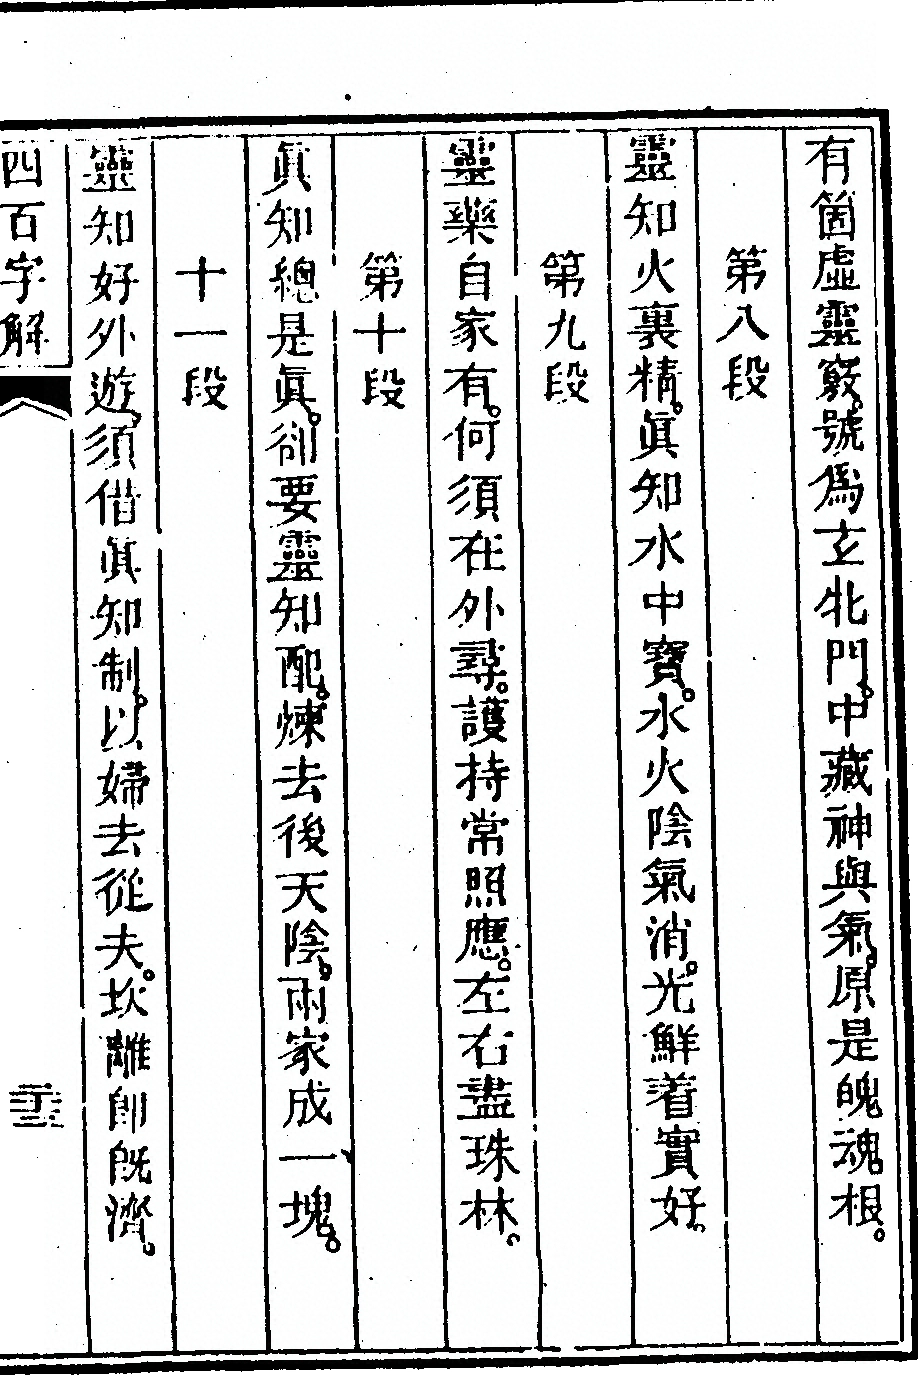 有箇虛靈竅。號爲玄牝門。中藏神與氣。原是魄魂根。
第八段
靈知火裏精。眞知水中寶。水火陰氣消。光鮮着實好。
第九段
靈藥自家有。何須在外尋。護持常照應。左右盡珠林。
第十段
眞知總是眞。卻要靈知配。煉去後天陰。兩家成一塊。
十一段
靈知好外遊。須借眞知制。以婦去從夫。坎離卽旣濟。
四百字解